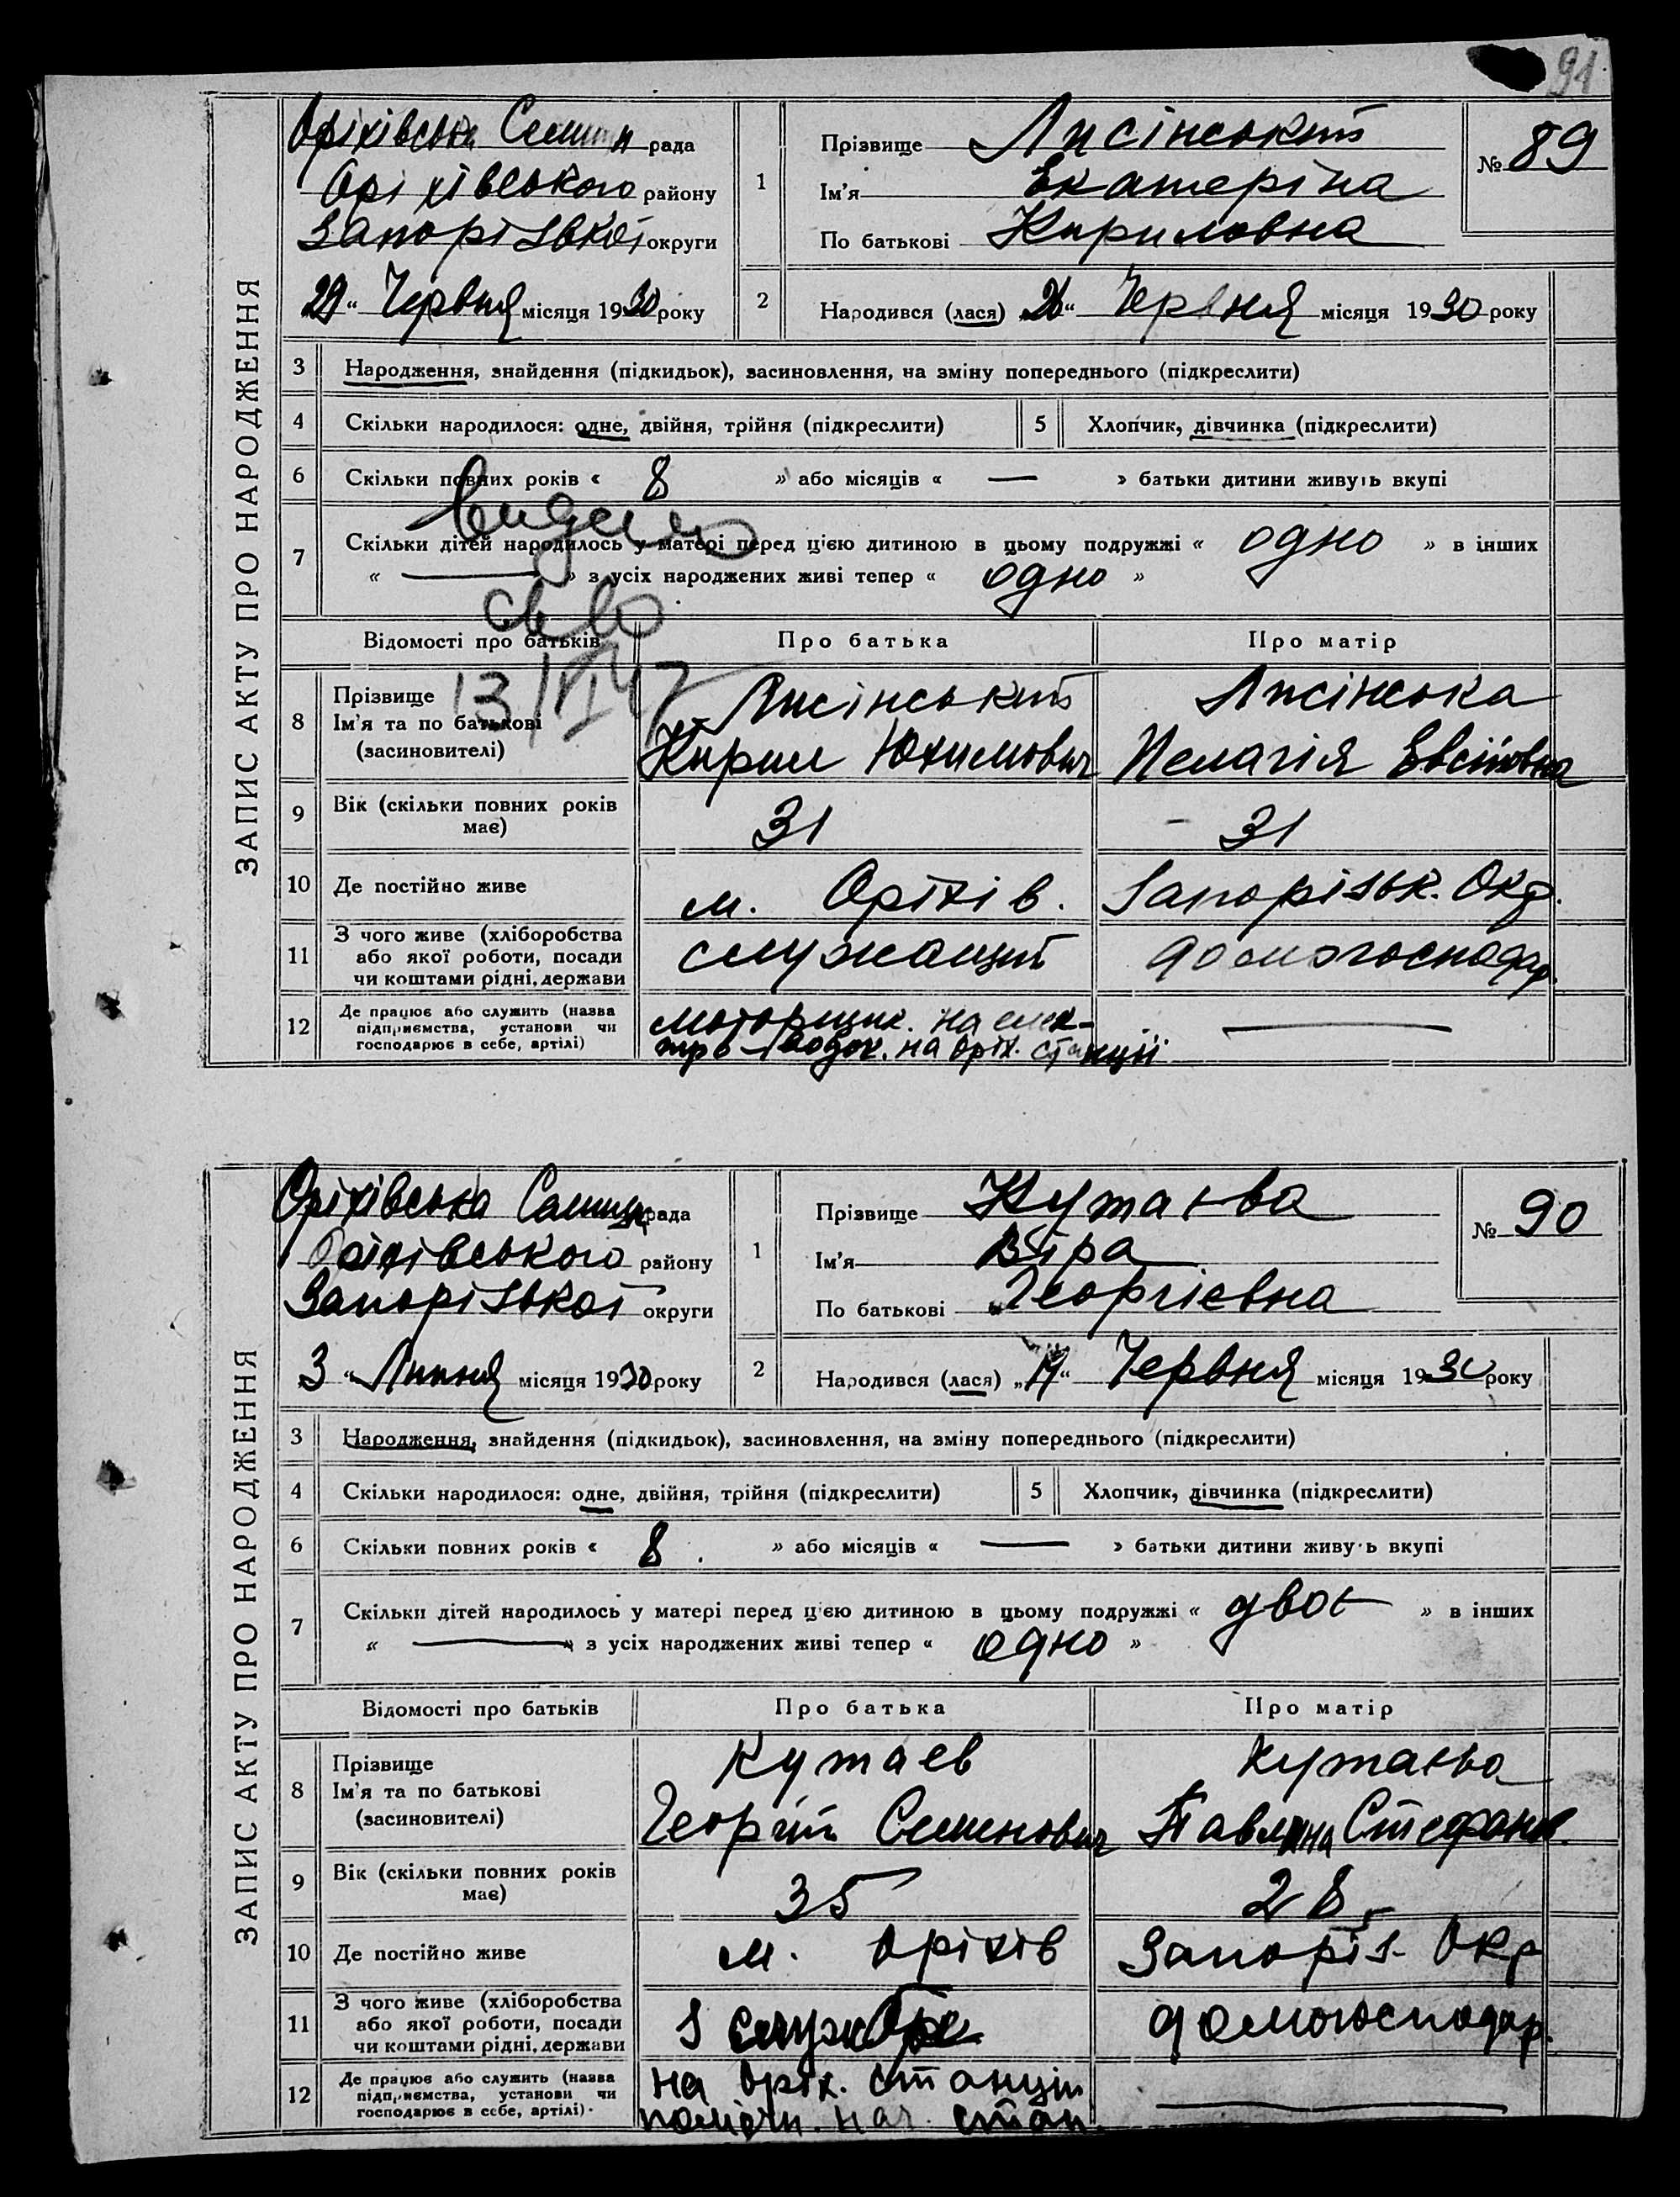 91
ЗАПИС АКТУ ПРО НАРОДЖЕННЯ
Оріхівська рада
Оріхівського району
Запорізької округи
29 " Червня місяця 1930 року
1
Прізвище Лисінський
Ім'я Екатеріна
По батькові Кириловна
№ 89
2
Народився (лася) " Червня місяця 1930 року
3 Народження, знайдення (підкидьок), засиновлення, на зміну попереднього (підкреслити)
4 Скільки народилося: одне, двійня, трійня (підкреслити) 5 Хлопчик, дівчинка (підкреслити)
6 Скільки повних років « 8 » або місяців « — » батьки дитини живуть вкупі
7 Скільки дітей народилось у матері перед цією дитиною в цьому подружжі « одно » в інших
« — » з усіх народжених живі тепер « одно »
Видано
св во
13/VI 47
Відомості про батьків Про батька Про матір
8 Прізвище Лисінський Лисінська
Ім'я та по батькові Кирил Юхимович Пелагія
(засиновителі)
9 Вік (скільки повних років має) 31 31
10 Де постійно живе м. Оріхів. Запорізьк. Окр.
11 З чого живе (хліборобства або якої роботи, посади чи коштами рідні, держави служащий домогосподар.
12 Де працює або служить (назва підприємства, установи чи господарює в себе, артілі) моторщик. на елек-
тро-водок. на Оріх. станції —
ЗАПИС АКТУ ПРО НАРОДЖЕННЯ
Оріхівська рада
Оріхівського району
Запорізької округи
3 " Липня місяця 1930 року
1
Прізвище Кутаєва
Ім'я Віра
По батькові Георгієвна
№ 90
2
Народився (лася) " Червня місяця 1930 року
3 Народження, знайдення (підкидьок), засиновлення, на зміну попереднього (підкреслити)
4 Скільки народилося: одне, двійня, трійня (підкреслити) 5 Хлопчик, дівчинка (підкреслити)
6 Скільки повних років « 8 » або місяців « — » батьки дитини живуть вкупі
7 Скільки дітей народилось у матері перед цією дитиною в цьому подружжі « двоє » в інших
« — » з усіх народжених живі тепер « одно »
Відомості про батьків Про батька Про матір
8 Прізвище Кутаев Кутаєва
Ім'я та по батькові Георгій Семенович Павлина Стефанов.
(засиновителі)
9 Вік (скільки повних років має) 35 28
10 Де постійно живе м. Оріхів Запоріз. Окр
11 З чого живе (хліборобства або якої роботи, посади чи коштами рідні, держави з служби домогосподар.
12 Де працює або служить (назва підприємства, установи чи господарює в себе, артілі) на Оріх. станціи
помічн. нач. стан. —